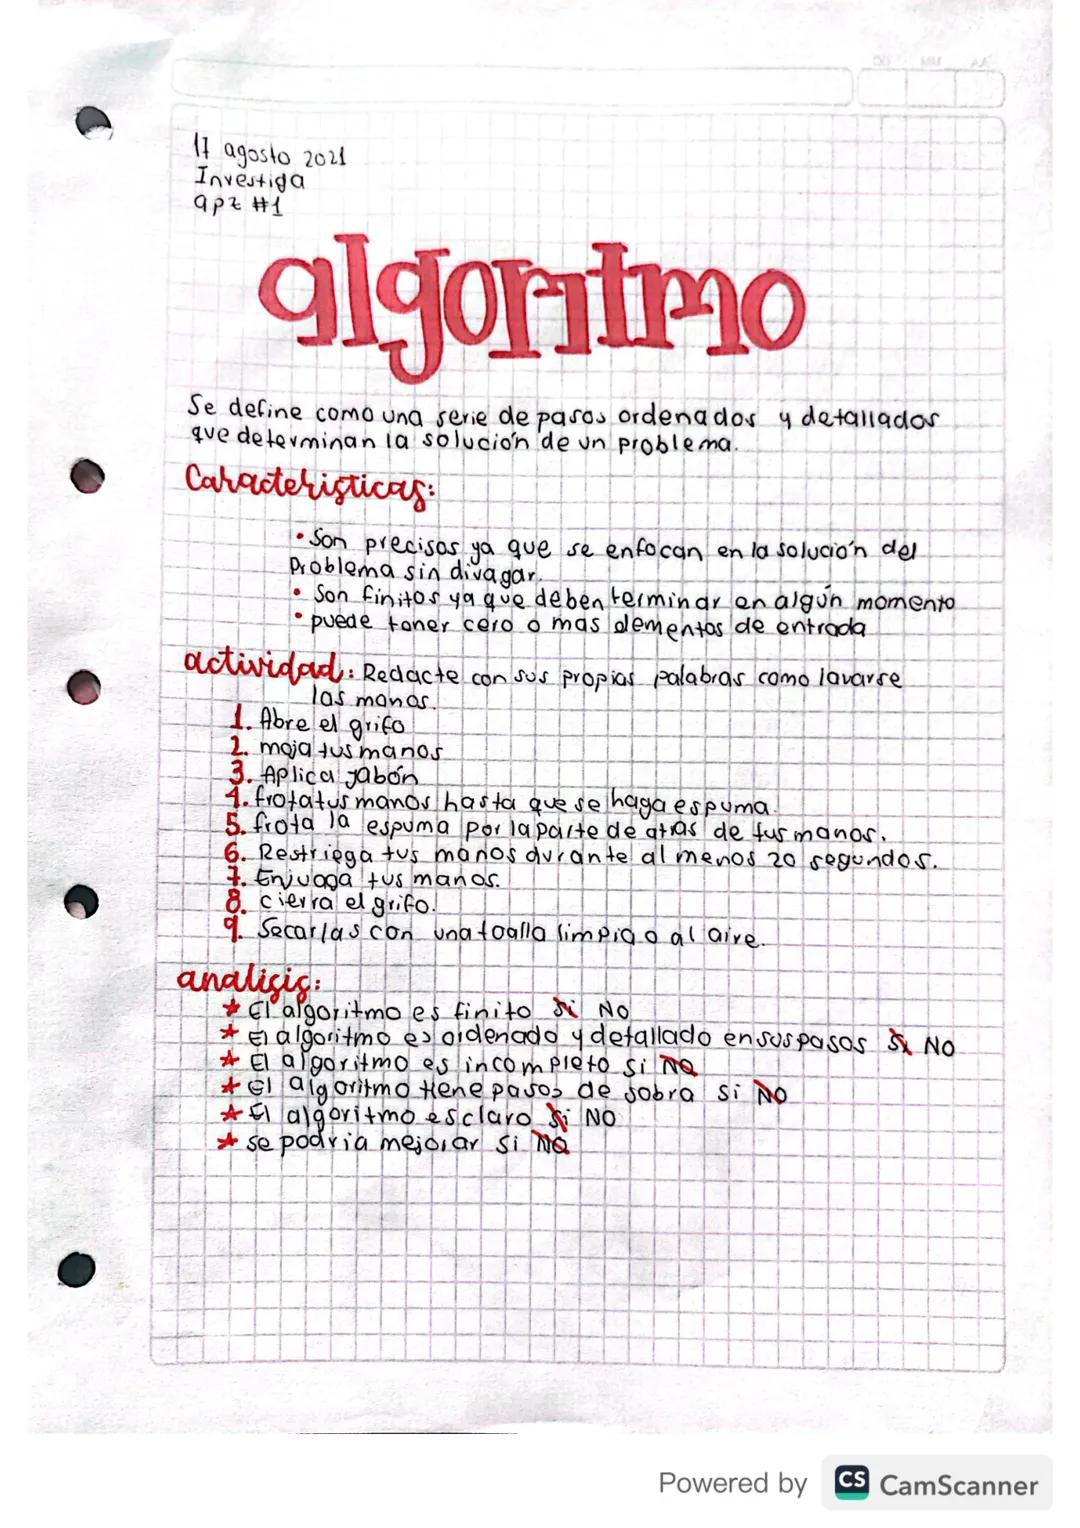 17 agosto 2021
Investiga
apz #1
algoritmo
Se define como una serie de pasos ordenados y detallados
que determinan la solución de un problema.
Caracteristicas:
• Son precisos ya que se enfocan en la solución del
Problema sin divagar.
• Son finitos ya que deben terminar en algún momento
• puede toner cero o mas elementos de entrada
actividad: Redacte con sus propias palabras como lavarse
las manos.
1. Abre el grifo
2. moja tus manos
3. Aplica jabón
4. frota tus manos hasta que se haga espuma.
5. frota la espuma por la parte de atras de tus manos.
6. Restriega tus manos durante al menos 20 segundos.
7. Enjuaga tus manos.
8. cierra el grifo.
9. Secarlas con una toalla limpia o al aire.
analisis:
★ El algoritmo es finito Si NO
★ El algoritmo es ordenado y detallado en sus pasos Si NO
★ El algoritmo es incompleto si NO
★ El algoritmo tiene pasos de sobra si NO
★ El algoritmo es claro Si NO
★ se podria mejorar si NO
Powered by CS CamScanner